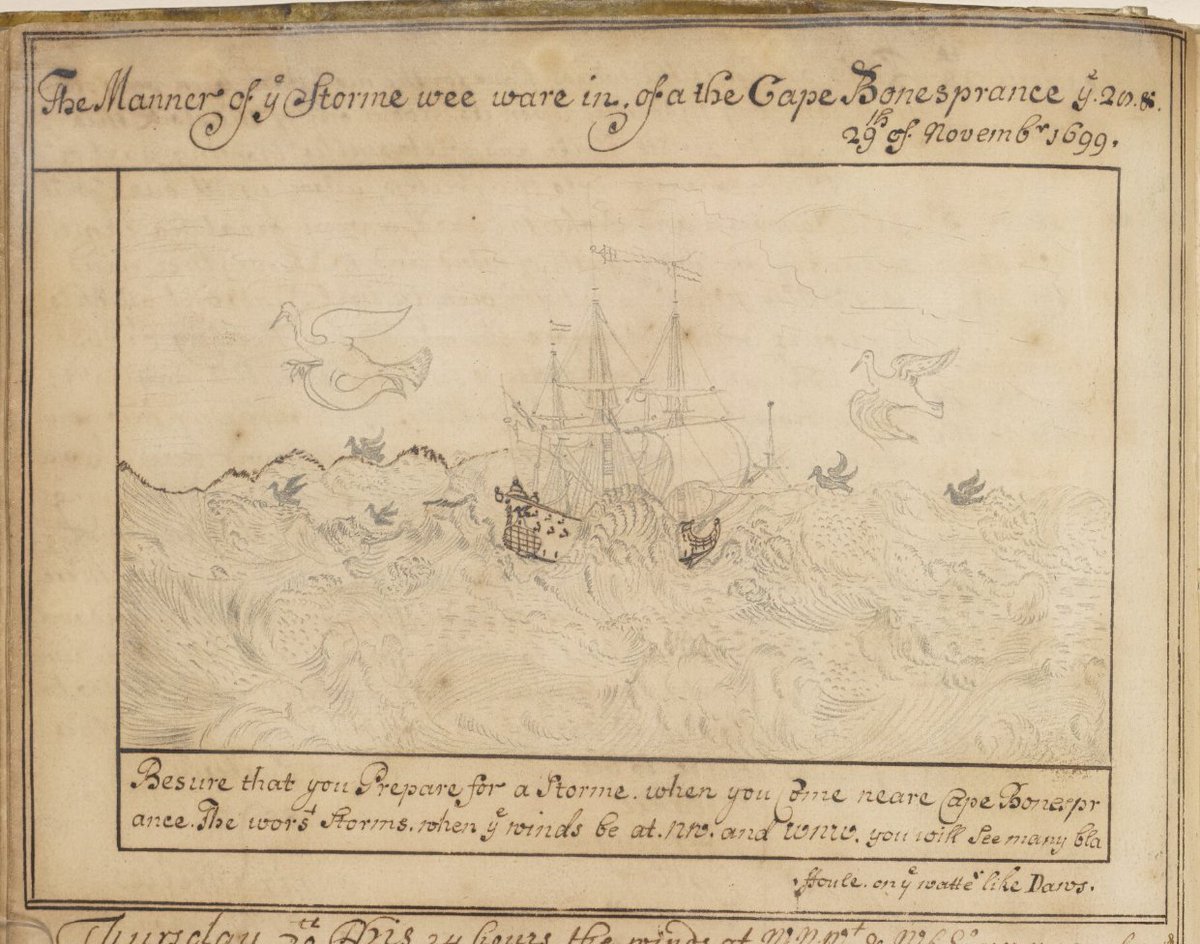 The Manner of yͤ Storme wee ware in, of a the Cape Bonesprance yͤ. 28. &.
29th of. Novembʳ 1699.
Besure that you Prepare for a Storme. when you Come neare Cape Bonespr
ance. The worst Storms. when yͤ winds be at. NW. and WNW. you will See many bla
foule. on yͤ watteʳ like Daws.
Thursday 30th This 24 hours the winds at